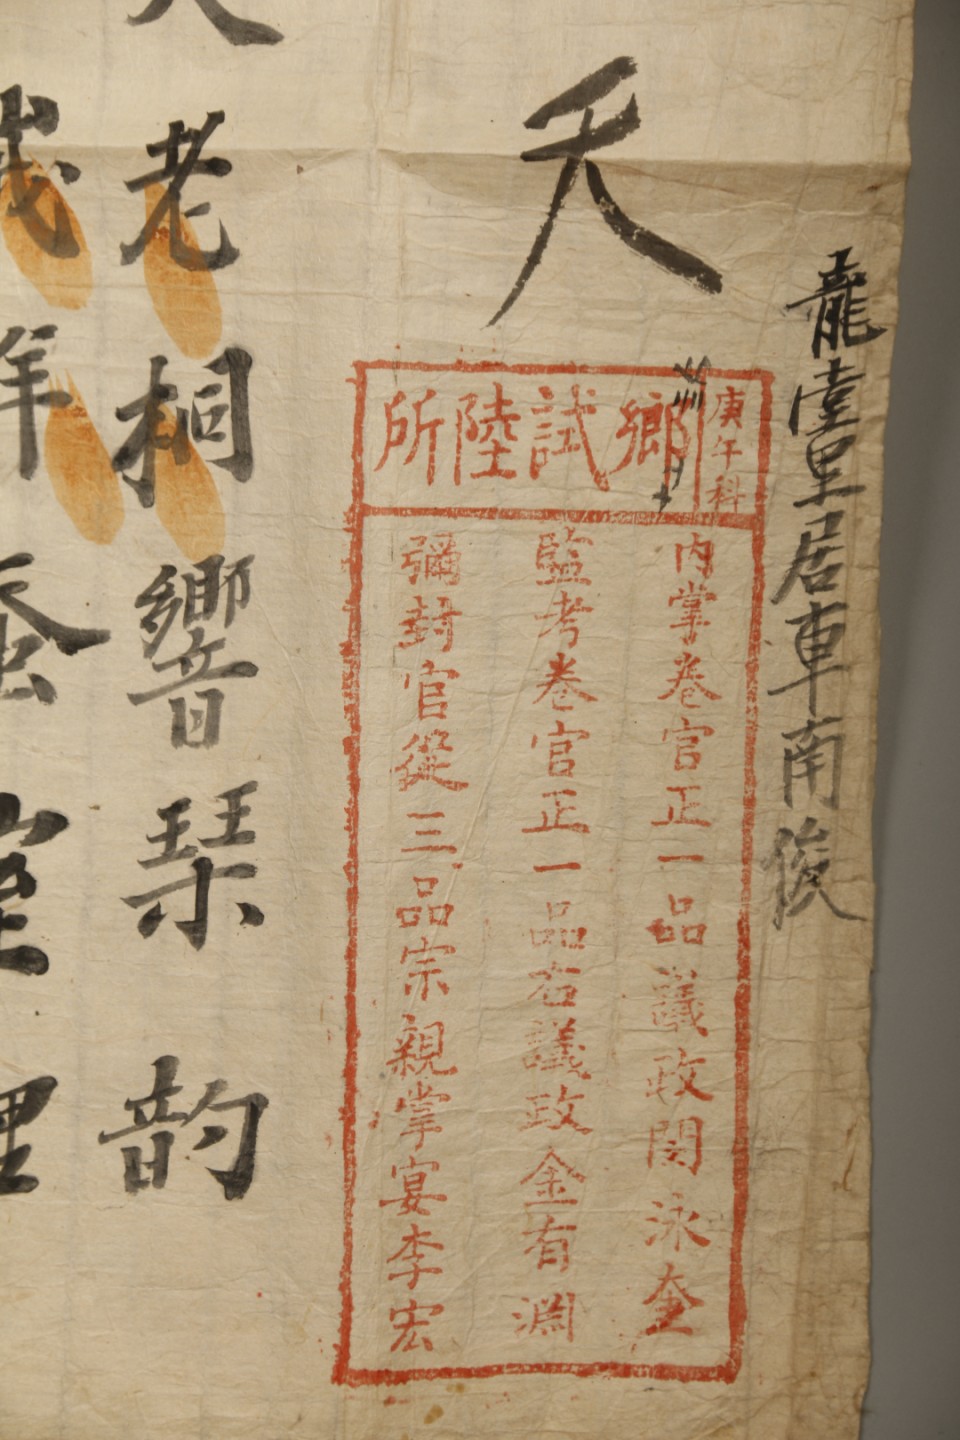 龍堂里居車南俊
天
庚午科
鄉試陸所
內掌卷官正一品議政閔泳奎
監考卷官正一品右議政金有淵
彌封官從三品宗親掌宴李宏
老桐響琴韵